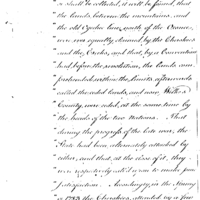 it shall be collected, it will be found, that
the lands between the mountains, and
the old line, south of the
are not equally claimed by the Cherokees
and the Creeks, and that, by a Convention
had, before the revolution, the lands com-
prehended within the limits afterwards
called the ceded lands, and now Wilkes
County, were ceded, at the same time by
the hands of the two Nations. That
during the progress of the late war, the
State had been alternately attacked by
either, and that, at the close of it, they
were respectively called upon to make
satisfaction. Accordingly, in the
1783 the Cherokees, attended by a few